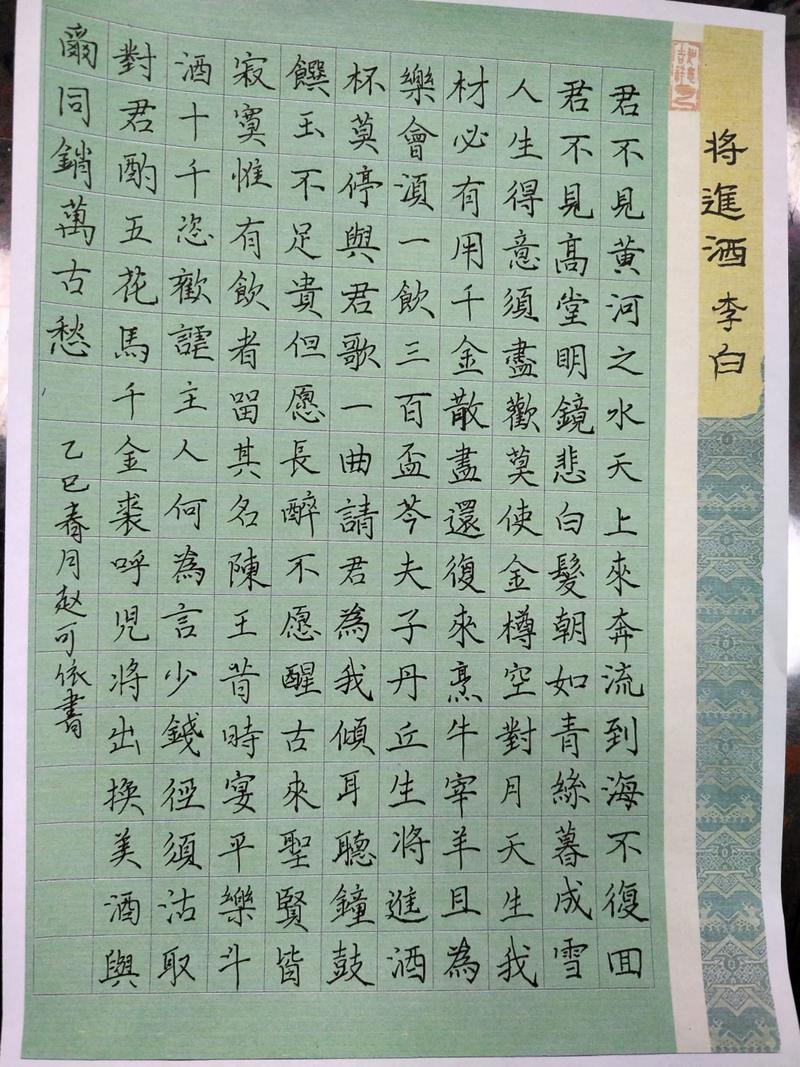 将進酒 李白
君不見黃河之水天上來奔流到海不復囬
君不見高堂明鏡悲白髮朝如青絲暮成雪
人生得意須盡歡莫使金樽空對月天生我
材必有用千金散盡還復來烹牛宰羊且為
樂會湏一飲三百盃芩夫子丹丘生将進酒
杯莫停與君歌一曲請君為我傾耳聽鐘鼓
饌玉不足貴但愿長醉不愿醒古來聖賢皆
寂寞惟有飲者留其名陳王昔時宴平樂斗
酒十千恣歡謔主人何為言少錢徑須沽取
對君酌五花馬千金裘呼児将出換美酒與
爾同銷萬古愁
乙巳春月赵可依書